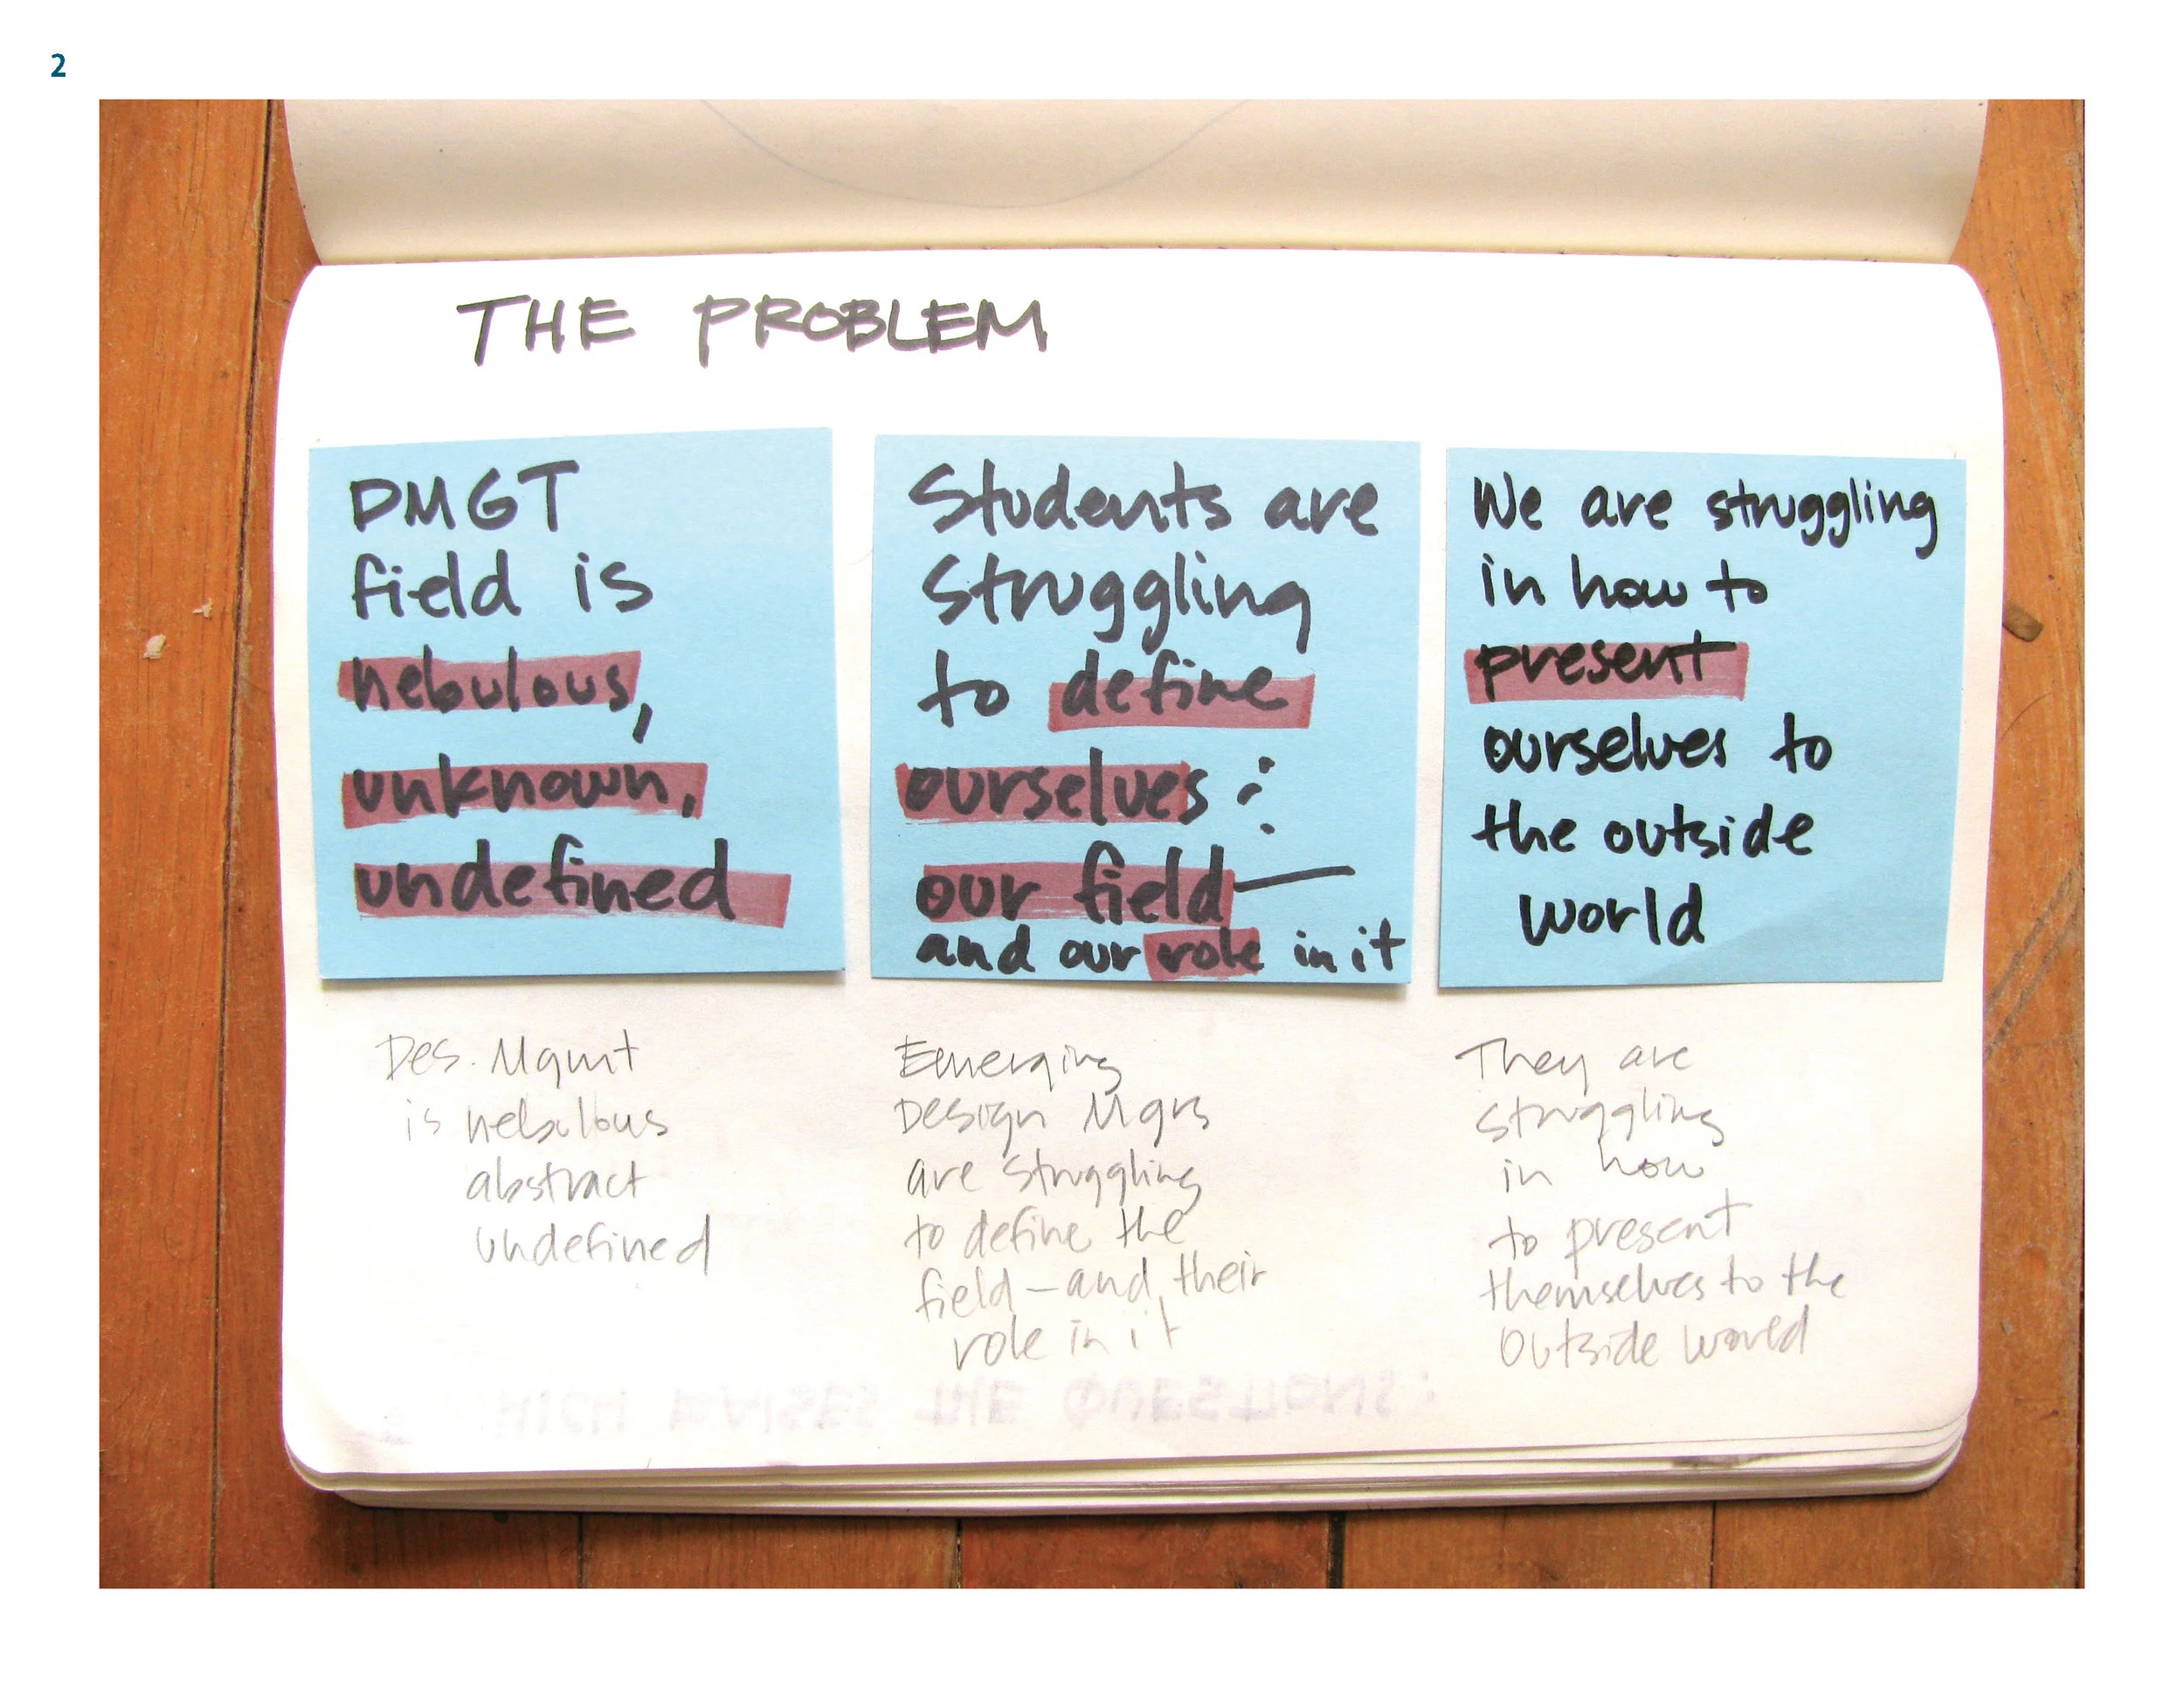 2
THE PROBLEM
DMGT
field is
nebulous,
unknown,
undefined
Students are
struggling
to define
ourselves :
our field —
and our role in it
We are struggling
in how to
present
ourselves to
the outside
world
Des. Mgmt
is nebulous
abstract
undefined
Emerging
Design Mgrs
are struggling
to define the
field — and their
role in it
They are
struggling
in how
to present
themselves to the
outside world
WHICH RAISES THE QUESTIONS: